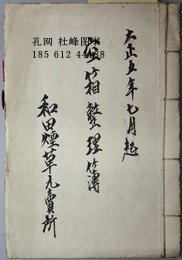 大正五年七月起
空箱整理簿
和田煙草元賣所
孔网 杜峰图书
185 612 44428